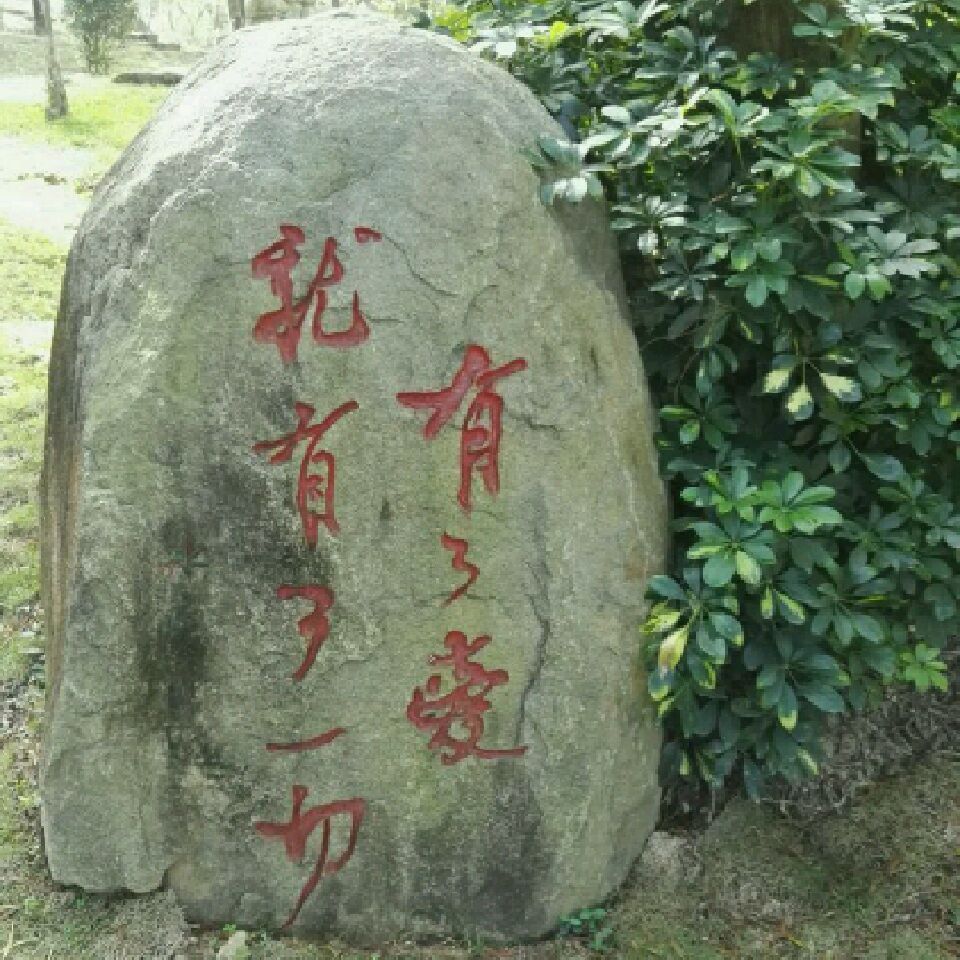 有了爱
就有了一切